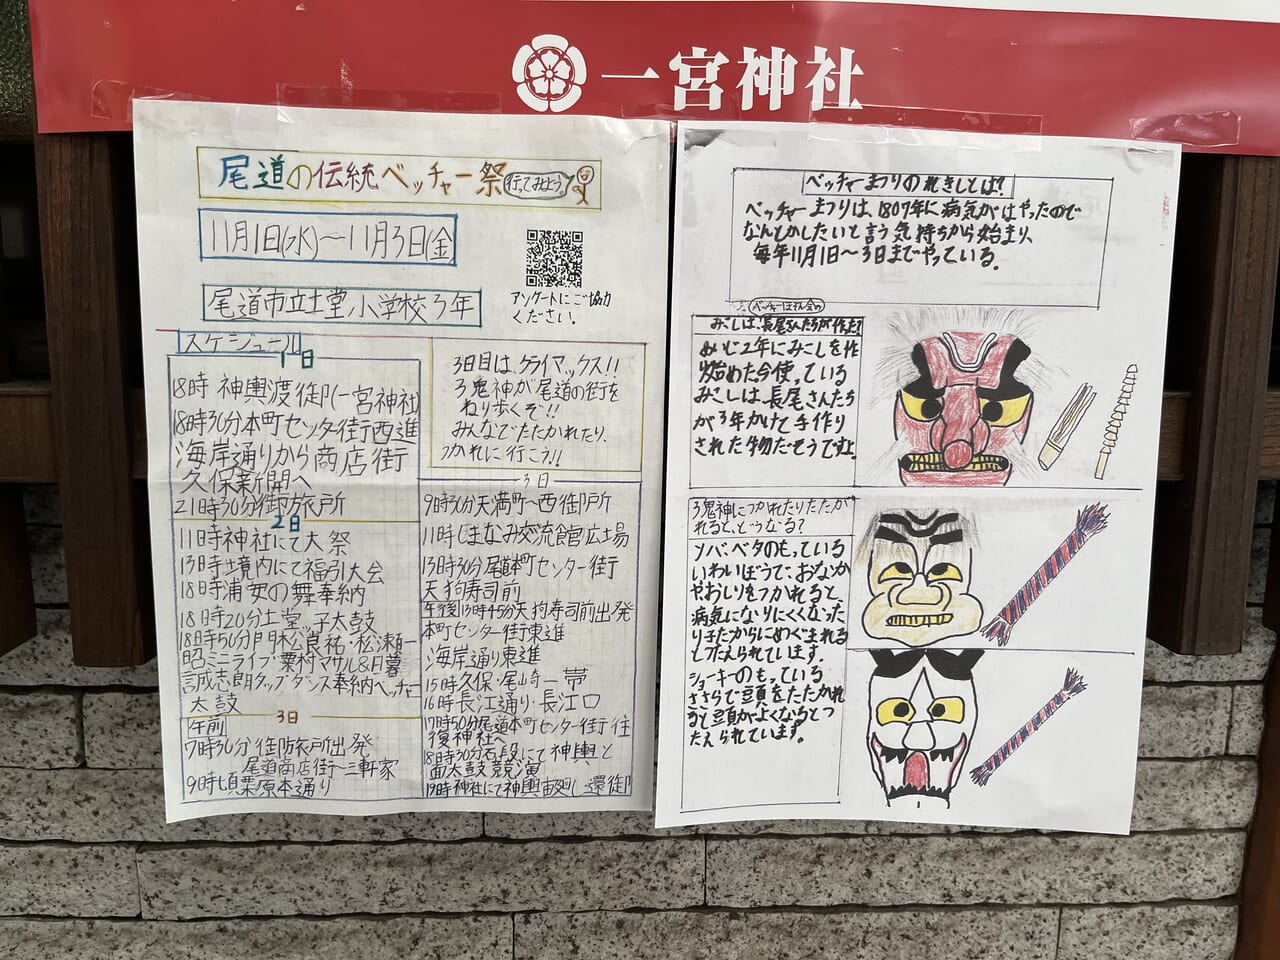 一宮神社
尾道の伝統ベッチャー祭
行ってみよう。
11月1日(水)～11月3日(金)
尾道市立土堂小学校3年
アンケートにご協力
ください。
スケジュール
1日
18時 神輿渡御(一宮神社)
18時30分本町センター街西進
海岸通りから商店街
久保新開へ
21時30分御旅所
2日
11時神社にて大祭
13時境内にて福引大会
18時浦安の舞奉納
18時20分土堂っ子太鼓
昭ミニライブ・粟村マサル&月暮
誠志朗タップダンス奉納ベッチャー
太鼓
3日
午前
7時30分御旅所出発
尾道商店街～三軒家
9時頃栗原本通り
3日目は、クライマックス!!
3鬼神が尾道の街を
ねり歩くぞ!!
みんなでたたかれたり、
つかれに行こう!!
3日
9時30分天満町～西御所
11時しまなみ交流館広場
13時30分尾道本町センター街
天狗寿司前
午後13時45分天狗寿司前出発
本町センター街東進
海岸通り東進
15時久保・尾崎一帯
16時長江通り・長江口
17時50分尾道本町センター街往
復神社へ
18時30分石段にて神輿と
面太鼓競演
19時神社にて神輿宙廻し還御
ベッチャーまつりのれきしとは?
ベッチャーまつりは、1807年に病気がはやったので
なんとかしたいと言う気持ちから始まり、
毎年11月1日～3日までやっている。
みこしは、長尾さんたちが作った?
めいじ2年にみこしを作
り始めた今使っている
みこしは、長尾さんたち
が3年かけて手作り
された物だそうですよ。
3鬼神につかれたりたたか
れると、どうなる?
ソバ、ベタのもっている
いわいぼうで、おなか
やおしりをつかれると
病気になりにくくなった
り子だからにめぐまれる
とつたえられています。
ショーキーのもっている
ささらで頭をたたかれ
ると頭がよくなるとつ
たえられています。